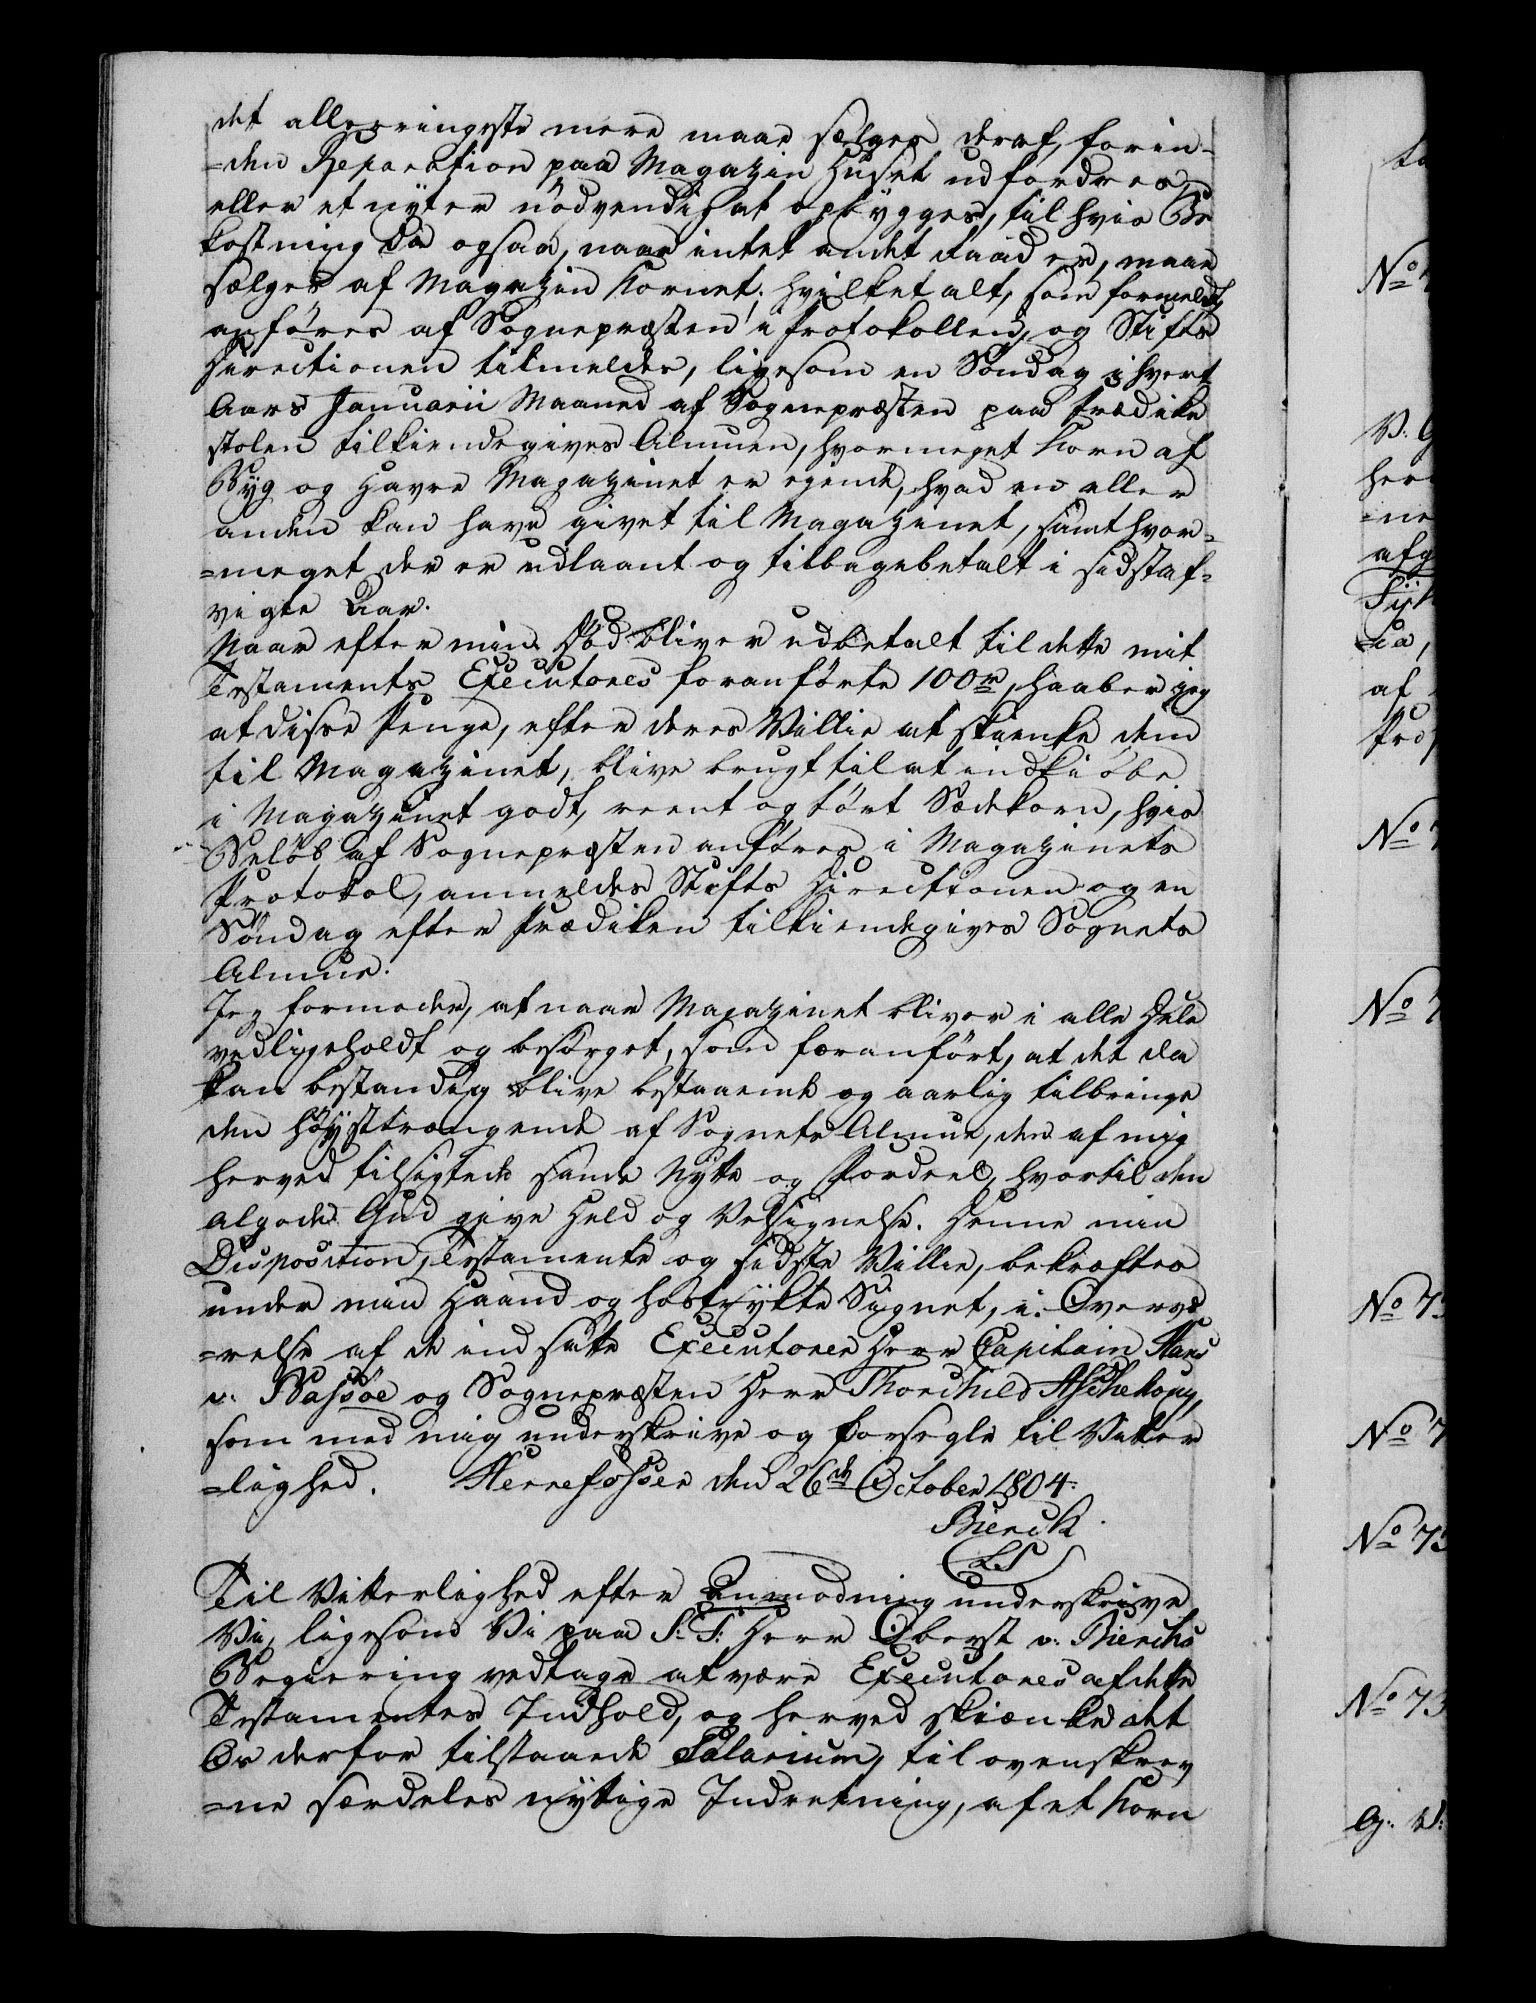 det allerringeste mere maae sælges deraf, forin-
=den Reparation paa Magazin Huset udfordres,
eller et nyter nödvendigat opbygges, til hvis Be
kostning da ogsaa, naar intet andet Raad er, maae
sælges af Magazin Kornet; hvilket alt, som formeldt,
anföres af Sognepræsten i Protokollen, og Stifts
Directionen tilmeldes, ligesom en Söndag i hvert
Aars Januarii Maaned af Sognepræsten paa Prædike
stolen tilkiendegives Almuen, hvormeget Korn af
Byg og Havre Magazinet er eyende, hvad en eller
anden kan have givet til Magazinet, samt hvor-
=meget der er udlaant og tilbagebetalt i sidstaf-
vigte Aar.
Naar efter min Död bliver udbetalt til dette mit
Testaments Executores foranförte 100 r, haaber jeg
at disse Penge, efter deres Villie at skienke dem
til Magazinet, blive brugt til at indkiöbe
i Magazinet godt, reent og tört Sædekorn, hvis
Belöb af Sognepræsten anföres i Magazinets
Protokol, anmeldes Stifts Directionen og en
Söndag efter Prædiken tilkiendegives Sognets
Almue.
Jeg formoder, at naar Magazinet bliver i alle Dele
vedligeholdt og besörget, som foranfört, at det da
kan bestandig blive bestaaende og aarlig tilbringe
den höysttrængende af Sognets Almue, den af mig
herved tilsigtede sande Nytte og Fordeel, hvortil den
algode Gud give Held og Velsignelse. Denne min
Disposition, Testamente og sidste Villie, bekræftes
under min Haand og hostrykte Signet, i Overvæ
=relse af de indsatte Executorer Herr Capitain Hans
v: Bassöe og Sognepræsten Herr Thorchild Aschehoug,
som med mig underskrive og forsegle til Vitter
=lighed. Herrefosser den 26de October 1804.
Bierch
L.S
Til Vitterlighed efter Anmodning underskrive
Vi, ligesom Vi paa S: T: Herr Oberst v: Bierchs
Begiering vedtage at være Executores af dette
Testamentes Indhold, og herved skiænke det
Os derfor tilstaaede Salarium, til ovenskrev
=ne særdeles nyttige Indretning, af et Korn
No
V: G
her
=ne
afg
af
No
No
No 73
No 7
No 73
No 73